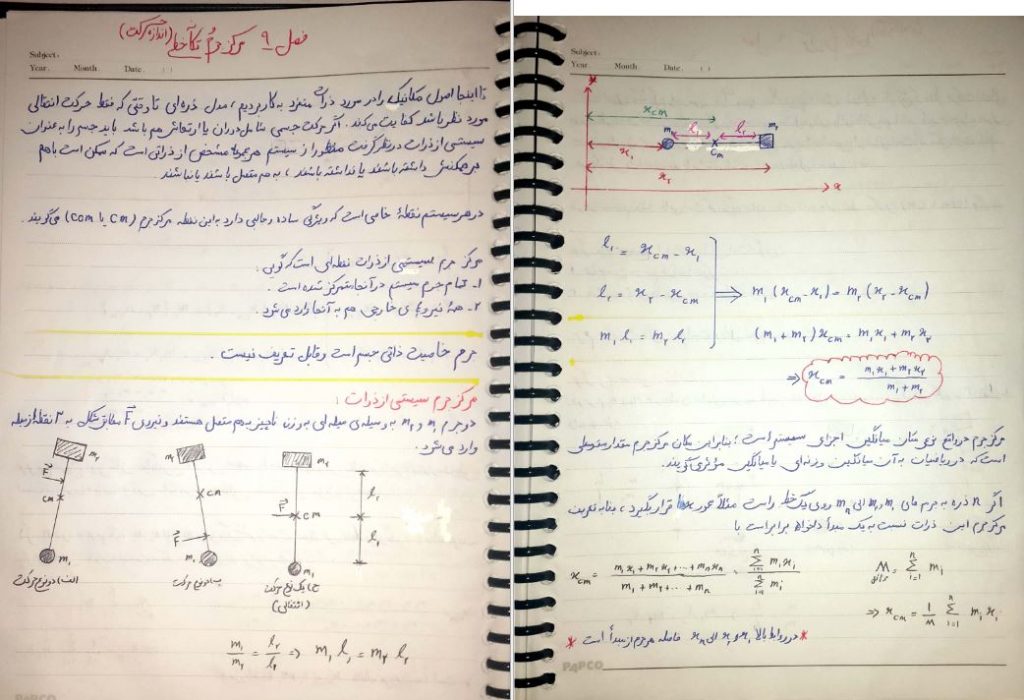 فصل ۹ مرکز جرم و تکانه خطی (اندازه حرکت)
Subject.
Year. Month. Date. ( )
تا اینجا اصول مکانیک را در مورد ذرات منفرد به کار بردیم، مدل ذره‌ای تا وقتی که فقط حرکت انتقالی
مورد نظر باشد کفایت می‌کند. اگر حرکت جسمی شامل دوران یا ارتعاش هم باشد باید جسم را به عنوان
سیستمی از ذرات در نظر گرفت منظور از سیستم هر مجموعه مشخص از ذراتی است که ممکن است با هم
برهمکنش داشته باشند یا نداشته باشند، به هم متصل باشند یا نباشند.
در هر سیستم نقطهٔ خاصی است که ویژگی ساده و جالبی دارد به این نقطه مرکز جرم (cm یا com) می‌گویند.
مرکز جرم سیستمی از ذرات نقطه‌ای است که گویی:
۱- تمام جرم سیستم در آنجا متمرکز شده است.
۲- همهٔ نیروهای خارجی هم به آنجا وارد می‌شود.
جرم خاصیت ذاتی جسم است و قابل تعریف نیست.
مرکز جرم سیستمی از ذرات:
دو جرم m₁ و m₂ به وسیله‌ی میله‌ای به وزن ناچیز به هم متصل هستند و نیروی F⃗ مطابق شکل به ۳ نقطه از میله
وارد می‌شود.
m₂ m₂ m₂
F cm cm F⃗ cm l₂
F l₁
m₁ m₁ m₁
الف) دو نوع حرکت ب) دو نوع حرکت ج) یک نوع حرکت
(انتقالی)
m₁/m₂ = l₂/l₁ ⇒ m₁ l₁ = m₂ l₂
Subject.
Year. Month. Date. ( )
y
x_cm
m₁ l₁ l₂ m₂
x₁ cm
x₂
x
l₁ = x_cm - x₁
l₂ = x₂ - x_cm ⇒ m₁ (x_cm - x₁) = m₂ (x₂ - x_cm)
m₁ l₁ = m₂ l₂ (m₁ + m₂) x_cm = m₁ x₁ + m₂ x₂
⇒ x_cm = (m₁ x₁ + m₂ x₂) / (m₁ + m₂)
مرکز جرم در واقع نوعی مکان میانگین اجزای سیستم است؛ بنابراین مکان مرکز جرم مقدار متوسطی
است که در ریاضیات به آن میانگین وزنه‌ای یا میانگین مؤثر می‌گویند.
اگر n ذره به جرم های m₁ و m₂ الی mₙ روی یک خط راست مثلاً محور x ها قرار بگیرد، بنا به تعریف
مرکز جرم این ذرات نسبت به یک مبدأ دلخواه برابر است با
x_cm = (m₁ x₁ + m₂ x₂ + ... + mₙ xₙ) / (m₁ + m₂ + ... + mₙ) = Σ mᵢ xᵢ / Σ mᵢ M = Σ mᵢ
⇒ x_cm = 1/M Σ mᵢ xᵢ
* در روابط بالا x₁ و x₂ الی xₙ فاصله هر جرم از مبدأ است *
PAPCO